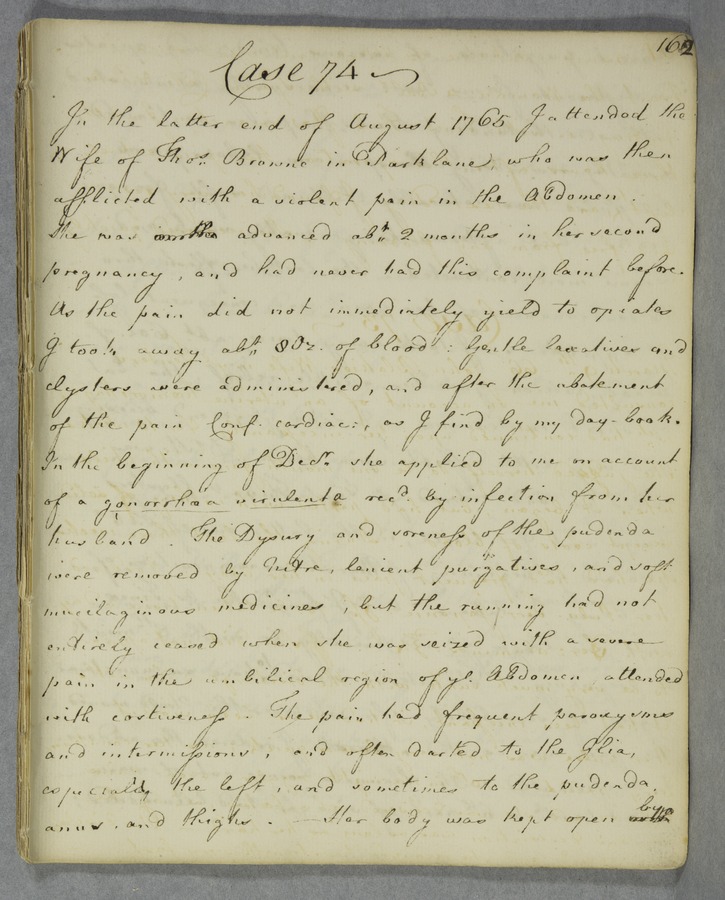 162
Case 74
In the latter end of August 1765 I attended the
Wife of Thos. Browne in Parklane, who was then
afflicted with a violent pain in the Abdomen.
She was advanced abt. 2 months in her second
pregnancy, and had never had this complaint before.
As the pain did not immediately yield to opiates
I took away abt. 8 Oz. of blood: Gentle laxatives and
clysters were administred, and after the abatement
of the pain Conf. cardiac:, as I find by my day-book.
In the beginning of Decr. she applied to me on account
of a gonorrhœa virulenta recd. by infection from her
husband. The Dysury and soreness of the pudenda
were removed by Nitre, lenient purgatives, and soft
mucilaginous medicines, but the running had not
entirely ceased when she was seized with a severe
pain in the umbilical region of ye. Abdomen attended
with costiveness. The pain had frequent paroxysms
and intermissions, and often darted to the Ilia,
especially the left, and sometimes to the pudenda,
anus, and thighs. — Her body was kept open by